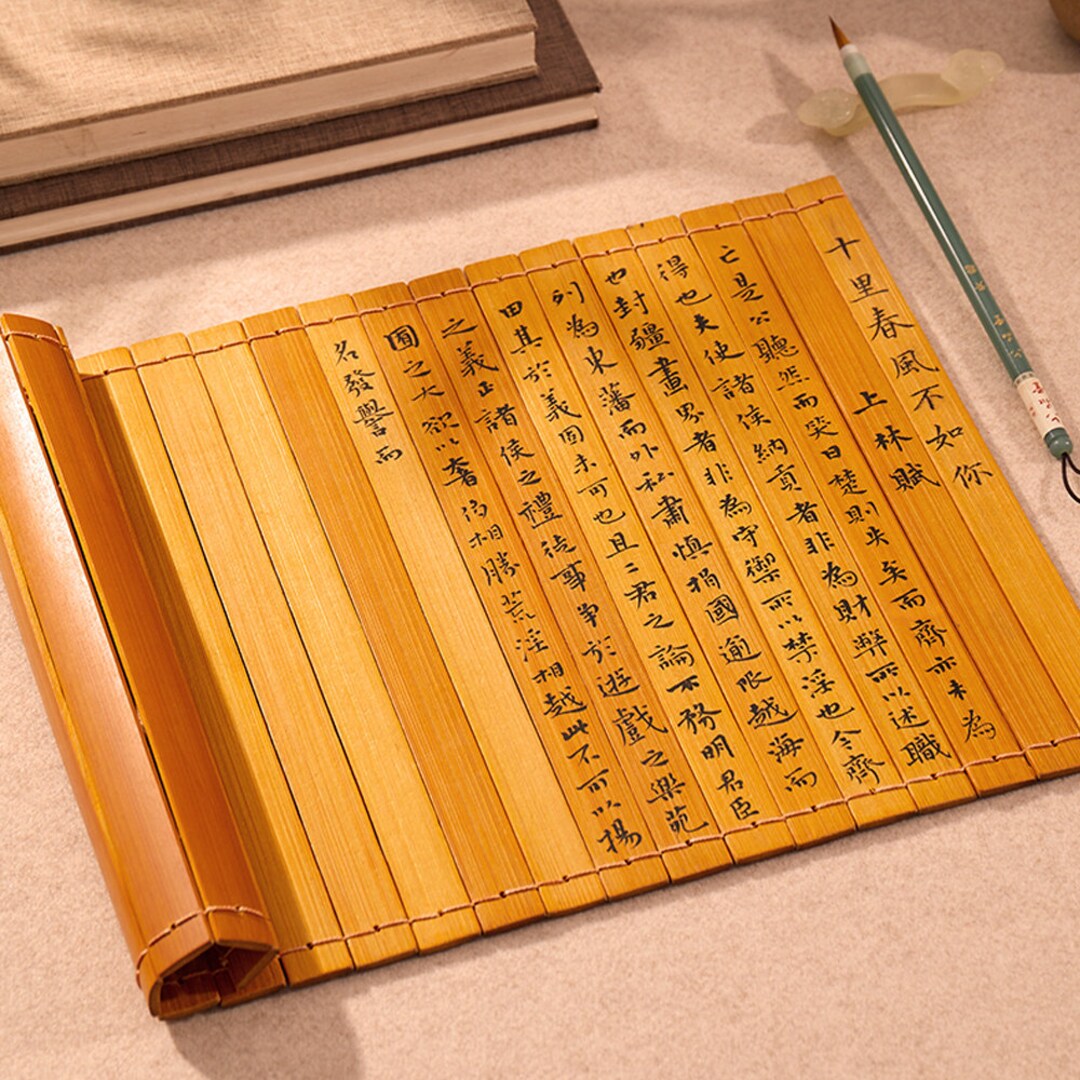 十里春風不如你
上林賦
亡是公聽然而笑曰楚則失矣而齊亦未為
得也夫使諸侯納貢者非為財弊所以述職
也封疆畫界者非為守禦所以禁淫也今齊
列為東藩而外私肅慎捐國逾限越海而
田其於義固未可也且二君之論不務明君臣
之義正諸侯之禮徒事爭於遊戲之樂苑
囿之大欲以奢侈相勝荒淫相越此不可以揚
名發譽而